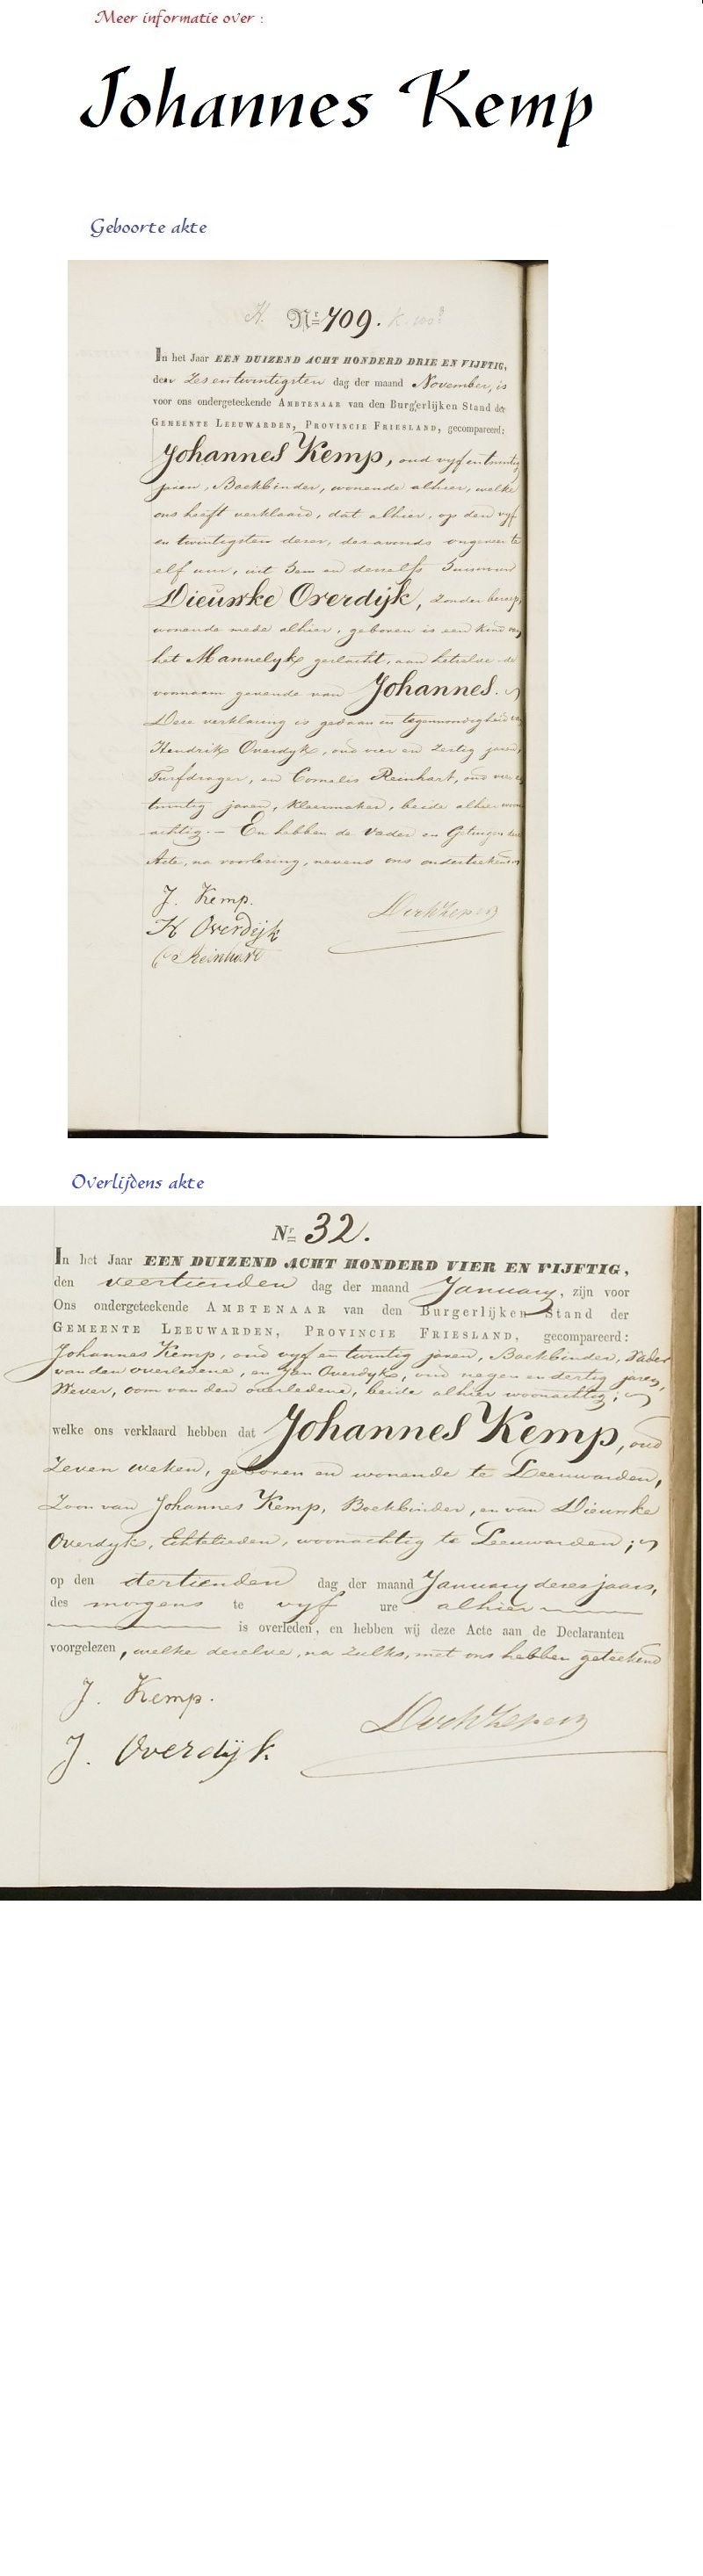 Meer informatie over :
Johannes Kemp
Geboorte akte
Nr 709.
In het Jaar EEN DUIZEND ACHT HONDERD DRIE EN VIJFTIG,
den Zesentwintigsten dag der maand November, is
voor ons ondergeteekende AMBTENAAR van den Burgerlijken Stand der
GEMEENTE LEEUWARDEN, PROVINCIE FRIESLAND, gecompareerd:
Johannes Kemp, oud vyf en twintig
jaren, Boekbinder, wonende alhier, welke
ons heeft verklaard, dat alhier, op den vyf
en twintigsten dezer, des avonds ongeveer te
elf uur, uit hem en deszelfs huisvrouw
Dieuwke Overdijk, zonder beroep,
wonende mede alhier, geboren is een kind van
het Mannelyk geslacht, aan hetwelve de
voornaam gevende van Johannes.
Deze verklaring is gedaan in tegenwoordigheid van
Hendrik Overdyk, oud vier en zestig jaren,
Turfdrager, en Cornelis Reinhart, oud vier en
twintig jaren, Kleermaker, beide alhier woon
achtig. – En hebben de Vader en Getuigen deze
Acte, na voorlezing, nevens ons onderteekend
J. Kemp.
H Overdijk
C Reinhart
Overlijdens akte
Nr 32.
In het Jaar EEN DUIZEND ACHT HONDERD VIER EN VIJFTIG,
den veertienden dag der maand January, zijn voor
Ons ondergeteekende AMBTENAAR van den Burgerlijken Stand der
GEMEENTE LEEUWARDEN, PROVINCIE FRIESLAND, gecompareerd:
Johannes Kemp, oud vyf en twintig jaren, Boekbinder, Vader
van den overledene, en Jan Overdyk, oud negen en dertig jaren,
Wever, oom van den overledene, beide alhier woonachtig;
welke ons verklaard hebben dat Johannes Kemp, oud
Zeven weken, geboren en wonende te Leeuwarden,
Zoon van Johannes Kemp, Boekbinder, en van Dieuwke
Overdyk, Echtelieden, woonachtig te Leeuwarden;
op den dertienden dag der maand January dezes jaars,
des morgens te vyf ure alhier
is overleden, en hebben wij deze Acte aan de Declaranten
voorgelezen, welke dezelve, na zulks, met ons hebben geteekend
J. Kemp.
J. Overdijk